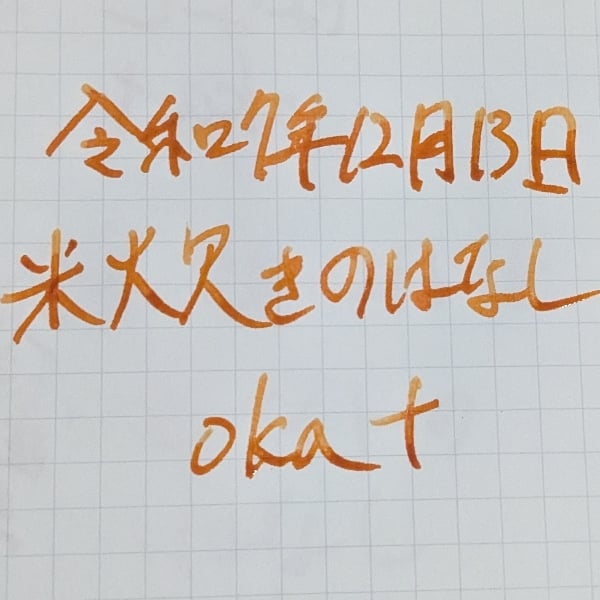 令和7年12月13日
米炊きのはなし
okat